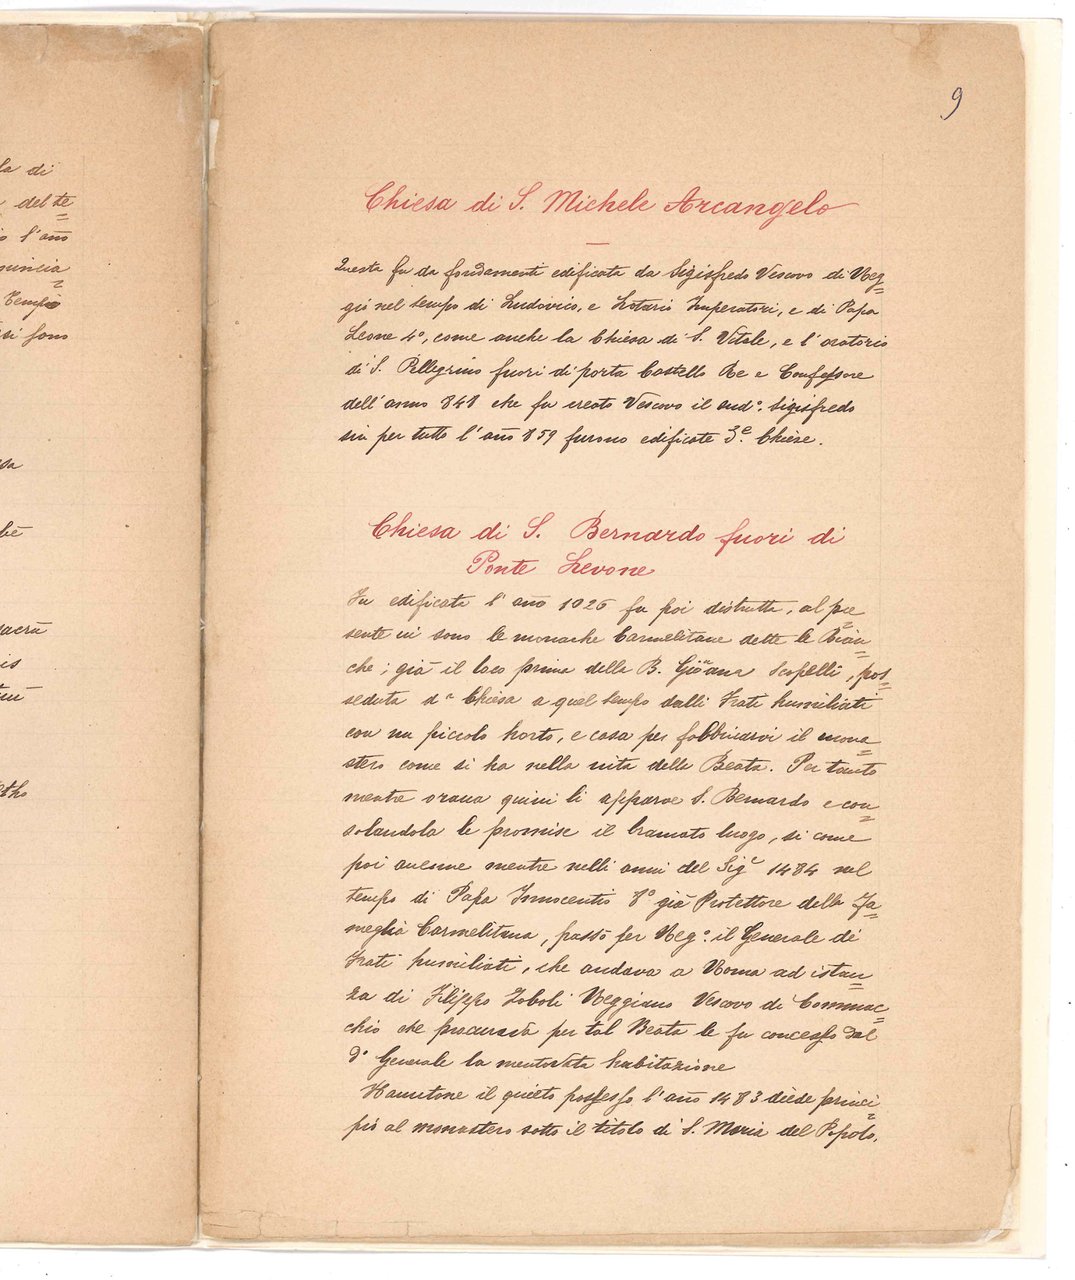 la di
del te=
o l'año
nuncia=
Tempio
si sono
sa
bē
sacrū
is
tuū
tho
9
Chiesa di S. Michele Arcangelo
Questa fu da fondamenti edificata da Sigisfredo Vescovo di Reg=
gio nel tempo di Ludovico, e Lotario Imperatori, e di Papa
Leone 4°, come anche la Chiesa di S. Vitale, e l'oratorio
di S. Pellegrino fuori di porta Castello Re e Confessore
dell'anno 848 che fu creato Vescovo il sud°. Sigisfredo
sin per tutto l'año 859 furono edificate 3e. Chiese.
Chiesa di S. Bernardo fuori di
Ponte Levone
Fu edificata l'año 1026 fu poi distrutta, al pre=
sente ui sono le monache Carmelitane dette le Bian=
che; già il loco prima della B. Gioana Scopelli, pos=
seduta da Chiesa a quel tempo dalli Frati humiliati
con un picciolo horto, e casa per fabbricarvi il mona=
stero come si ha nella uita della Beata. Per tanto
mentre oraua quiui li apparve S. Bernardo e con=
solandola le promise il bramato luogo, si come
poi auenne mentre nelli anni del Sigr 1484 nel
tempo di Papa Innocentio 8° già Protettore della Fa=
meglia Carmelitana, passò per Reg°. il Generale dè
Frati humiliati, che andava a Roma ad istan=
za di Filippo Zoboli Reggiano Vescovo di Commac=
chio che procurava per tal Beata le fu concesso dal
d° Generale la mentovata habitazione
Hauutone il quieto possesso l'año 1483 diede princi=
pio al monastero sotto il titolo di S. Maria del Popolo,